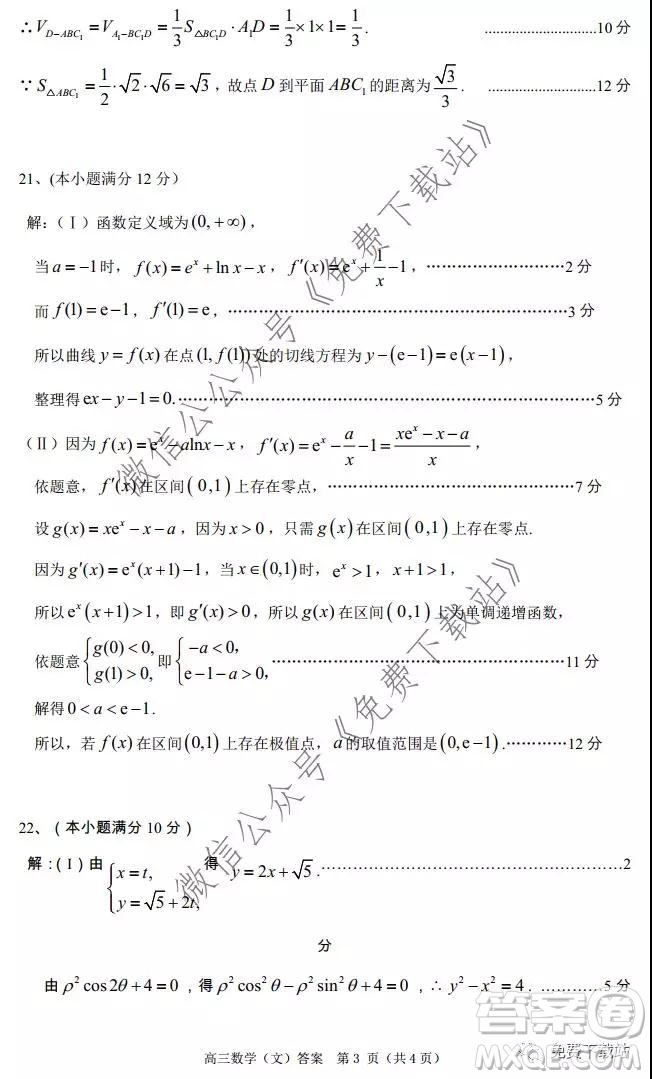 ∴V_{D-ABC₁}=V_{A₁-BC₁D}=1/3 S_{△BC₁D}·A₁D=1/3×1×1=1/3. ............................10 分
∵S_{△ABC₁}=1/2·√2·√6=√3，故点 D 到平面 ABC₁的距离为 √3/3. ...........................12 分
21、(本小题满分 12 分）
解:（Ⅰ）函数定义域为(0,+∞)，
当 a=-1 时， f(x)=eˣ+ln x-x， f′(x)=eˣ+1/x-1，…………………………2 分
而 f(1)=e-1， f′(1)=e，…………………………………………………………3 分
所以曲线 y=f(x) 在点 (1, f(1)) 处的切线方程为 y-(e-1)=e(x-1)，
整理得 ex-y-1=0.……………………………………………………………………5 分
(Ⅱ) 因为 f(x)=eˣ-alnx-x， f′(x)=eˣ-a/x-1=(xeˣ-x-a)/x，
依题意， f′(x) 在区间 (0,1) 上存在零点，………………………………………7 分
设 g(x)=xeˣ-x-a，因为 x>0，只需 g(x) 在区间 (0,1) 上存在零点.
因为 g′(x)=eˣ(x+1)-1，当 x∈(0,1) 时， eˣ>1， x+1>1，
所以 eˣ(x+1)>1，即 g′(x)>0，所以 g(x) 在区间 (0,1) 上为单调递增函数，
依题意 {g(0)<0, g(1)>0, 即 {-a<0, e-1-a>0, ………………………………………………11 分
解得 0<a<e-1.
所以，若 f(x) 在区间 (0,1) 上存在极值点， a 的取值范围是 (0,e-1).…………12 分
22、（本小题满分 10 分）
解：(Ⅰ) 由 {x=t, y=√5+2t, 得 y=2x+√5.……………………………………………………2
分
由 ρ²cos2θ+4=0，得 ρ²cos²θ-ρ²sin²θ+4=0，∴ y²-x²=4. …………5 分
高三数学（文）答案 第 3 页（共 4 页）
微信公众号《免费下载站》
微信公众号《免费下载站》
免费下载站
答案圈
MXQE.COM